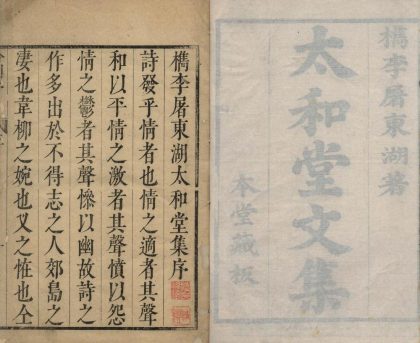 檇李屠東湖著
太和堂文集
本堂藏板
檇李屠東湖太和堂集序
詩發乎情者也情之適者其聲
和以平情之激者其聲憤以怨
情之鬱者其聲慘以幽故詩之
作多出於不得志之人郊島之
凄也韋柳之婉也又之恠也仝